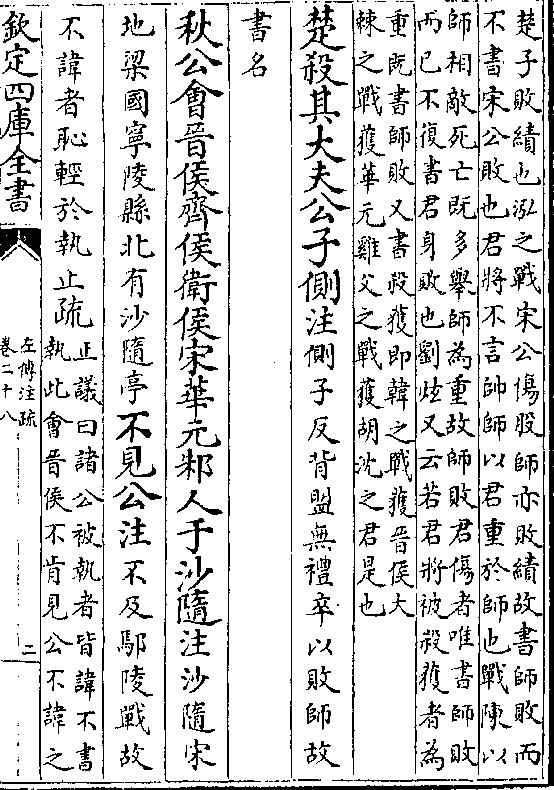 楚子敗績也泓之戰宋公傷股師亦敗績故書師敗而
不書宋公敗也君將不言帥師以君重於師也戰陳以
師相敵死亡既多舉師為重故師敗君傷者唯書師敗
而已不復書君身敗也劉炫又云若君將被殺獲者為
重既書師敗又書殺獲即韓之戰獲晉侯大
棘之戰獲華元雞父之戰獲胡沈之君是也
楚殺其大夫公子側注側子反背盟無禮卒以敗師故
書名
秋公會晉侯齊侯衛侯宋華元邾人于沙隨注沙隨宋
地梁國寧陵縣北有沙隨亭不見公注不及鄢陵戰故
不諱者恥輕於執止疏
正義曰諸公被執者皆諱不書
執此會晉侯不肯見公不諱之
欽定四庫全書
左傳注疏
卷二十八
二